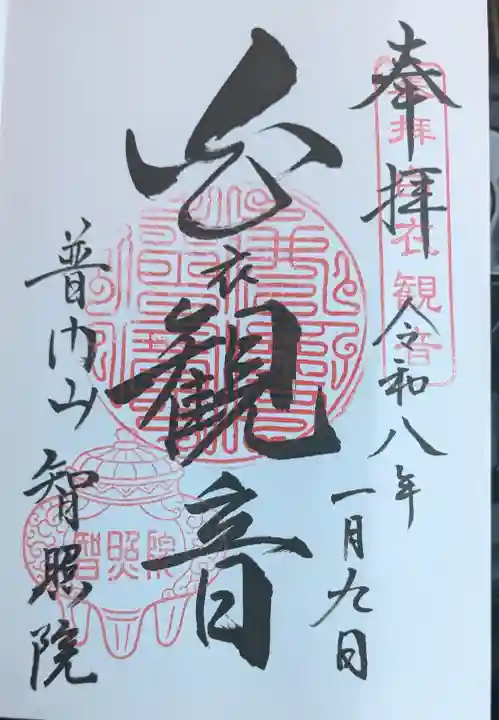 奉拝
令和八年
一月九日
奉拝 白衣観音
白衣観音
普門山
智照院
智照院